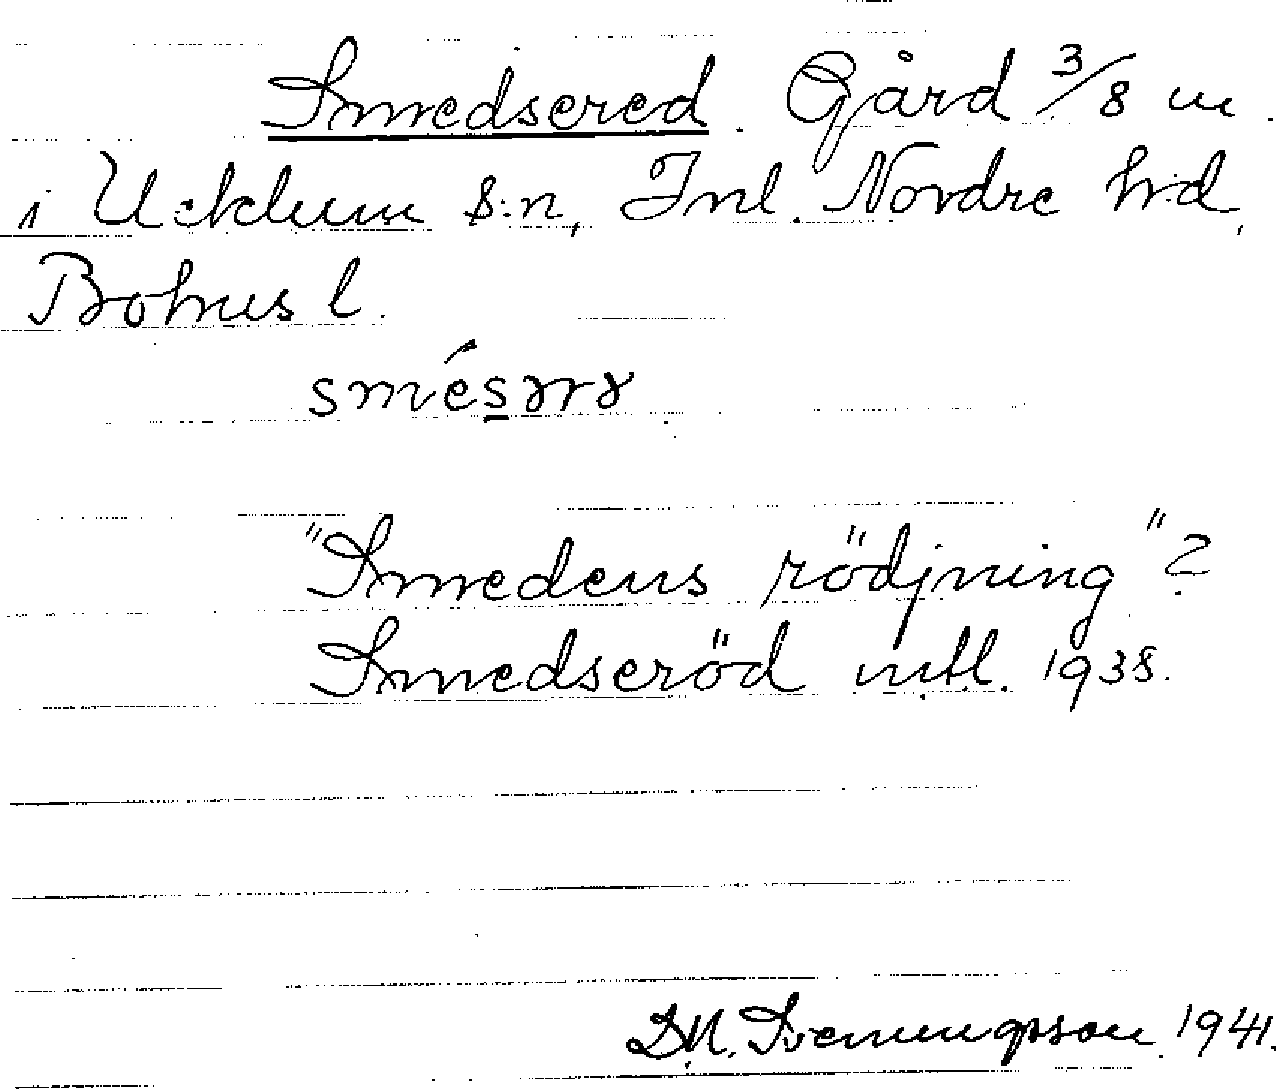 Smedsered. Gård 3/8 m.
i Ucklum s:n, Inl. Nordre h:d,
Bohus l.
"Smedens rödjning"?
Smedseröd mtl. 1938.
Svenningsson. 1941.